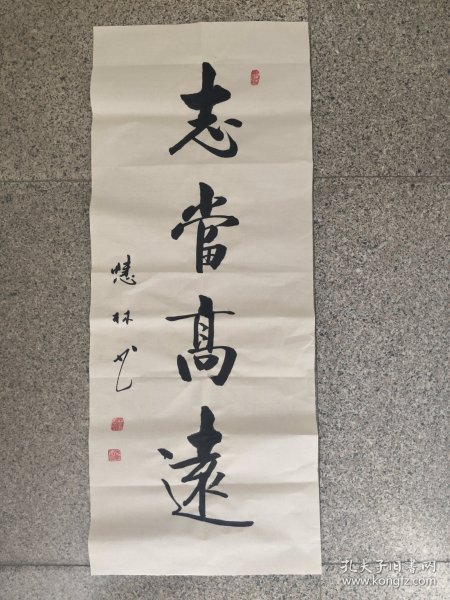 志當高遠
林
孔夫子旧书网
www.kongfz.com